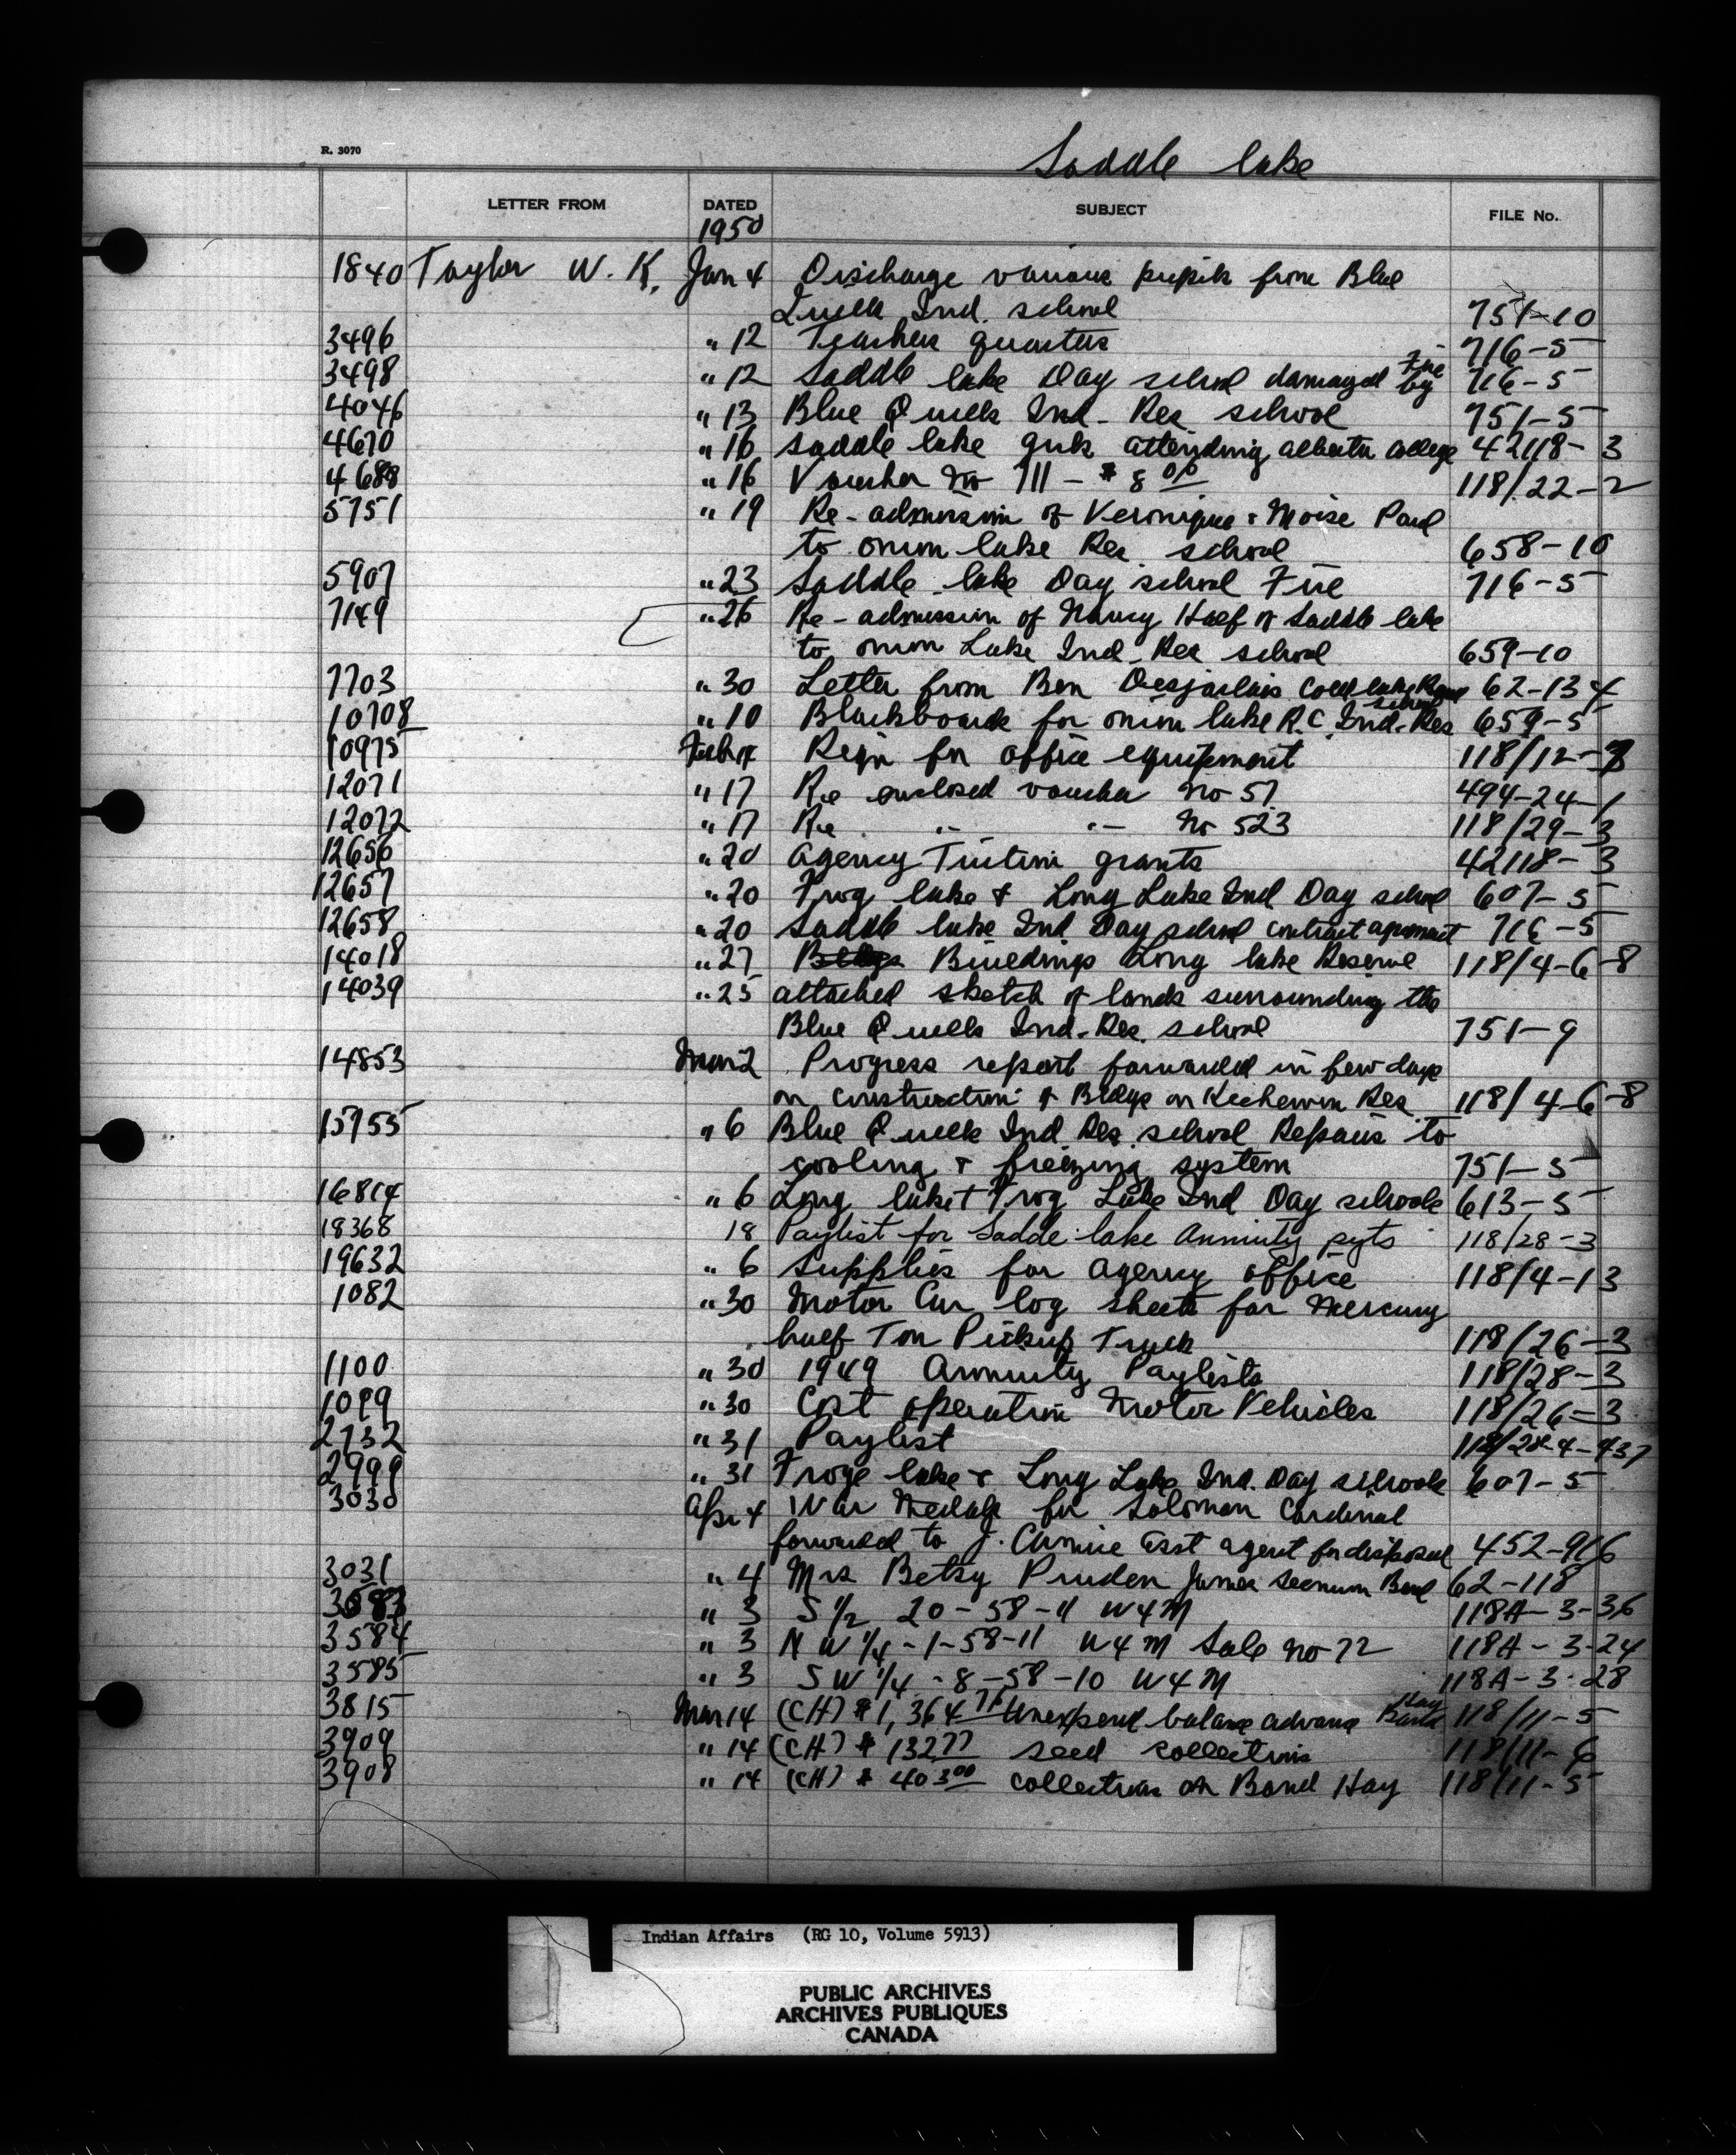 R. 3070
Saddle lake
LETTER FROM DATED SUBJECT FILE No.
1950
1840 Taylor W. K. Jan 4 Discharge various pupils from Blue
Quills Ind. school 751-10
3496 " 12 Teachers quarters 716-5
3498 " 12 Saddle lake Day school damaged by Fire 716-5
4046 " 13 Blue Quills Ind. Res school 751-5
4670 " 16 Saddle lake girls attending alberta college 42118-3
4688 " 16 Voucher No 711 - $8 00 118/22-2
5751 " 19 Re-admission of Veronique & Moise Paul
to onion lake Res school 658-10
5907 " 23 Saddle lake Day school Fire 716-5
7149 " 26 Re-admission of Nancy Half of Saddle lake
to onion Lake Ind-Res school 659-10
7703 " 30 Letter from Ben Desjarlais Cold lake 62-134
10708 " 10 Blackboards for onion lake R.C. Ind-Res school 659-5
10975 Reqn for office equipment 118/12-3
12071 " 17 Re enclosed voucher No 57 494-24-1
12072 " 17 Re " " No 523 118/29-3
12656 " 20 Agency Tuition grants 42118-3
12657 " 20 Frog lake & Long Lake Ind Day school 607-5
12658 " 20 Saddle lake Ind Day school contract agreement 716-5
14018 " 27 Bldgs Buildings Long lake Reserve 118/4-6-8
14039 " 25 attached sketch of lands surrounding the
Blue Quills Ind-Res. school 751-9
14853 Mar 2 Progress report forwarded in few days
on construction of Bldgs on Keehewin Res 118/4-6-8
15755 " 6 Blue Quills Ind Res school Repairs to
cooling & freezing system 751-5
16814 " 6 Long lake + Frog Lake Ind Day schools 613-5
18368 18 Paylist for Saddle lake Annuity pyts 118/28-3
19632 " 6 Supplies for agency office 118/4-13
1082 " 30 Motor Car log sheets for Mercury
half Ton Pickup Truck 118/26-3
1100 " 30 1949 Annuity Paylists 118/28-3
1099 " 30 Cost operation Motor Vehicles 118/26-3
2732 " 31 Paylist
2999 " 31 Froge lake & Long Lake Ind. Day schools 607-5
3030 Apr 4 War Medals for Solomon Cardinal
forwarded to J. asst agent for disposal 452-916
3031 " 4 Mrs Betsy Pruden James Seenum Band 62-118
3583 " 3 S 1/2 20-58-11 W4M 118A-3-36
3584 " 3 NW 1/4-1-58-11 W4M Sale No-72 118A-3-24
3585 " 3 SW 1/4-8-58-10 W4M 118A-3-28
3815 Mar 14 (CH) $1,364 71 Unexpend balance advance Hay 118/11-5
3909 " 14 (CH) $132 77 seed collections 118/11-6
3908 " 14 (CH) $403 00 collections on Band Hay 118/11-5
Indian Affairs (RG 10, Volume 5913)
PUBLIC ARCHIVES
ARCHIVES PUBLIQUES
CANADA